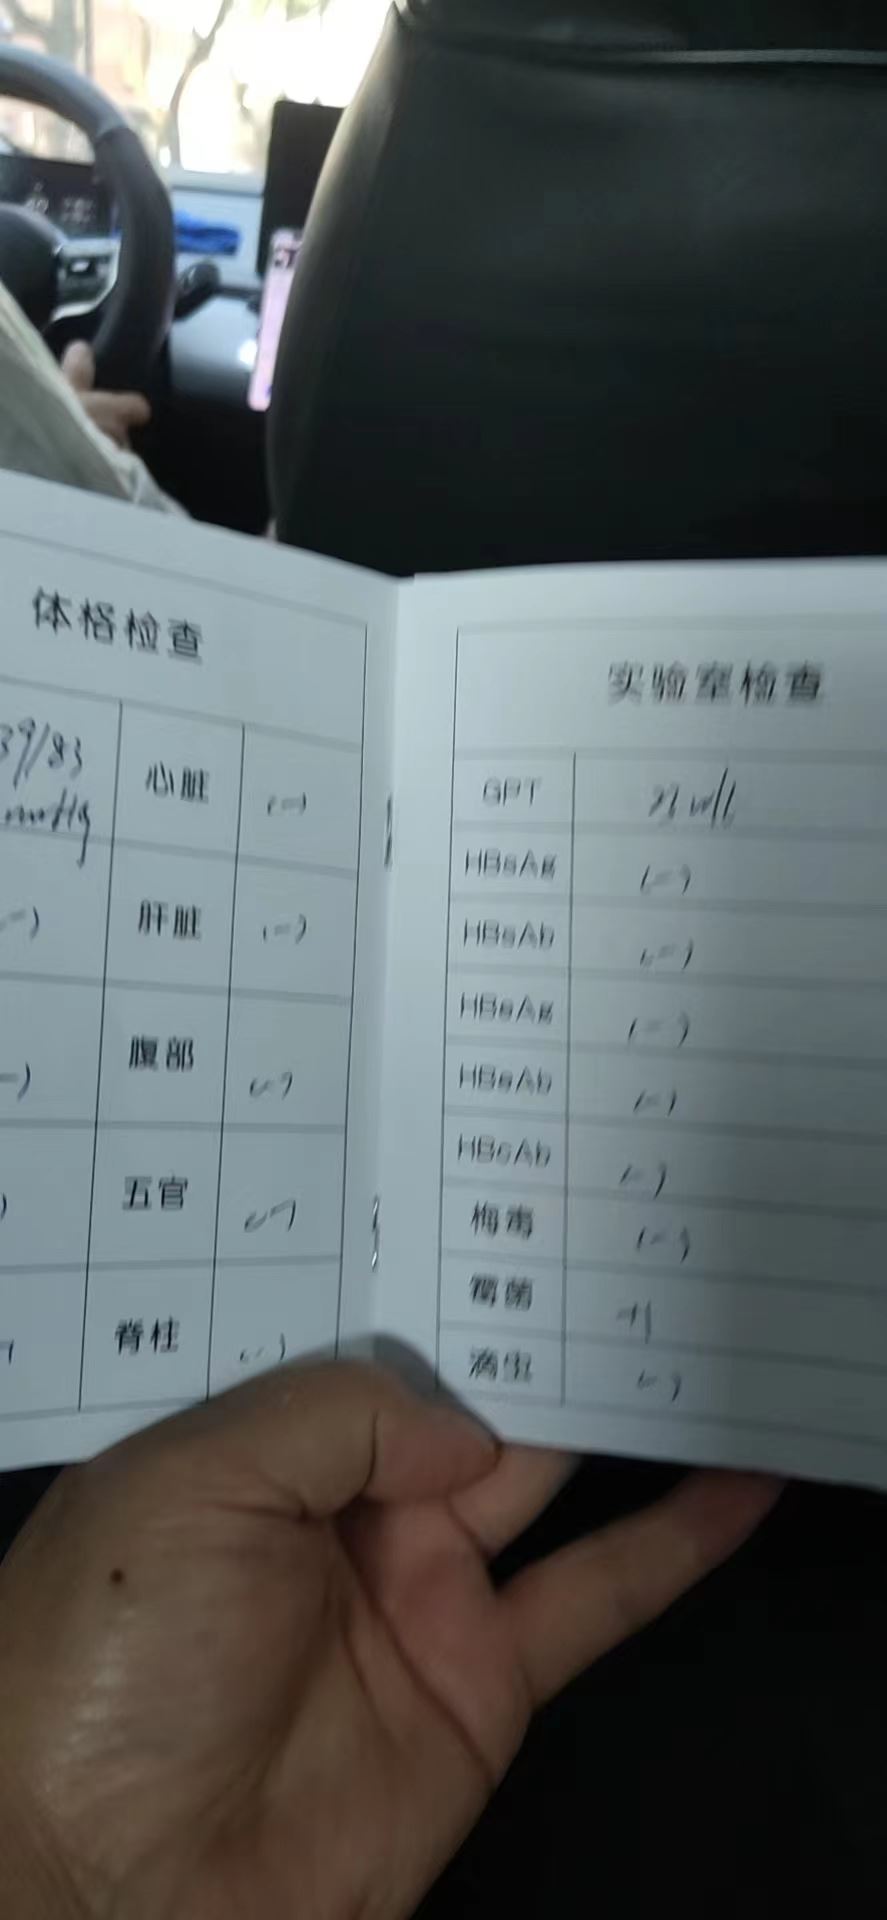 体格检查
39/83
mmHg
心脏 (-)
肝脏 (-)
腹部 (-)
五官 (-)
脊柱 (-)
实验室检查
GPT
HBsAg (-)
HBsAb (-)
HBeAg (-)
HBeAb (-)
HBcAb (-)
梅毒 (-)
霉菌
滴虫 (-)